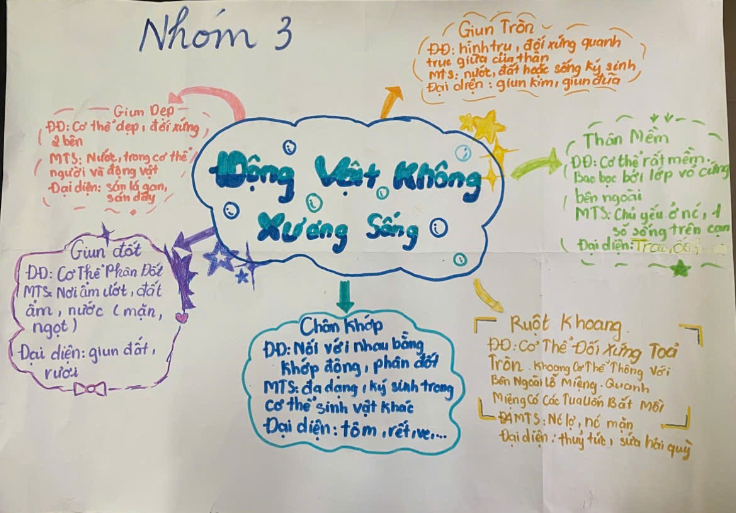 Nhóm 3
Động Vật Không
Xương Sống
Giun Tròn
ĐĐ: hình trụ, đối xứng quanh
trục giữa của thân
MTS: nước, đất hoặc sống ký sinh
Đại diện: giun kim, giun đũa
Giun Dẹp
ĐĐ: Cơ thể dẹp, đối xứng
2 bên
MTS: Nước, trong cơ thể
người và động vật
Đại diện: sán lá gan,
sán dây
Thân Mềm
ĐĐ: Cơ thể rất mềm.
Bao bọc bởi lớp vỏ cứng
bên ngoài
MTS: Chủ yếu ở nc, 1
số sống trên cạn
Đại diện: Trai, ốc
Giun đốt
ĐĐ: Cơ Thể Phân Đốt
MTS: Nơi ẩm ướt, đất
ẩm, nước (mặn,
ngọt)
Đại diện: giun đất,
rươi
Chân Khớp
ĐĐ: Nối với nhau bằng
khớp động, phân đốt
MTS: đa dạng, ký sinh trong
cơ thể sinh vật khác
Đại diện: tôm, rết, ve,...
Ruột Khoang
ĐĐ: Cơ Thể Đối Xứng Toả
Tròn. Khoang Cơ Thể Thông Với
Bên Ngoài Lỗ Miệng. Quanh
Miệng Có Các Tua Uốn Bắt Mồi
MTS: Nc lợ, nc mặn
Đại diện: thuỷ tức, sứa hải quỳ